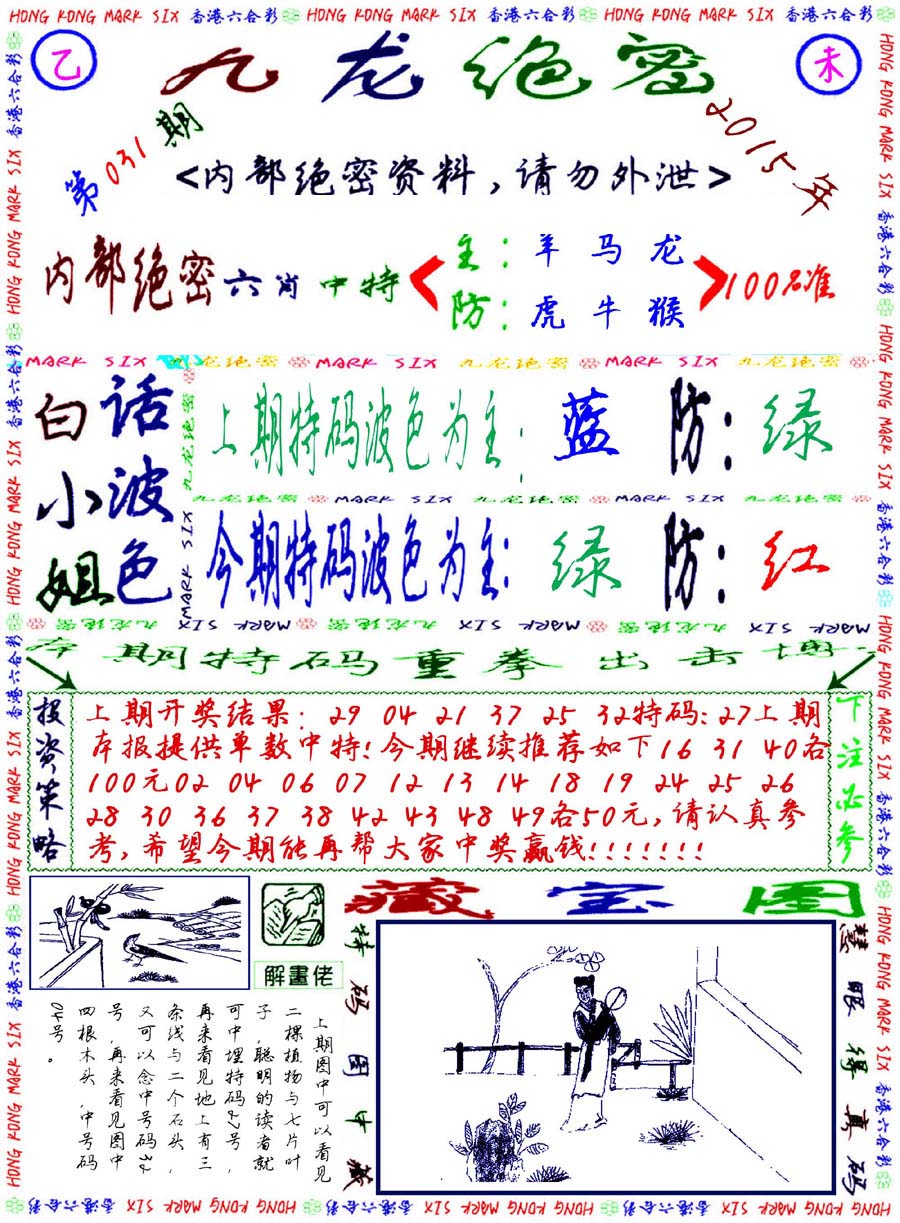 HONG KONG MARK SIX 香港六合彩 HONG KONG MARK SIX 香港六合彩 HONG KONG MARK SIX 香港六合彩
乙 九龙绝密 未
第031期 2015年
<内部绝密资料,请勿外泄>
内部绝密六肖中特
主:羊马龙
防:虎牛猴
100%准
MARK SIX 九龙绝密 MARK SIX 九龙绝密 MARK SIX 九龙绝密
白话
小波
姐色
上期特码波色为主:蓝 防:绿
九龙绝密 MARK SIX 九龙绝密 MARK SIX 九龙绝密
今期特码波色为主:绿 防:红
九龙绝密 MARK SIX 九龙绝密 MARK SIX 九龙绝密 MARK SIX
本期特码重拳出击
投资策略
上期开奖结果:29 04 21 37 25 32特码:27上期
本报提供单数中特!今期继续推荐如下16 31 40各
100元02 04 06 07 12 13 14 18 19 24 25 26
28 30 36 37 38 42 43 48 49各50元,请认真参
考,希望今期能再帮大家中奖赢钱!!!!!!!
下注必参
藏宝图
解畫佬
上期图中可以看见
二棵植物与七片叶
子,聪明的读者就
可中埋特码27号,
再来看见地上有三
条线与二个石头,
又可以念中号码32
号,再来看见图中
四根木头,中号码
04号。
特码图中藏
慧眼寻真码
HONG KONG MARK SIX 香港六合彩 HONG KONG MARK SIX 香港六合彩 HONG KONG MARK SIX 香港六合彩